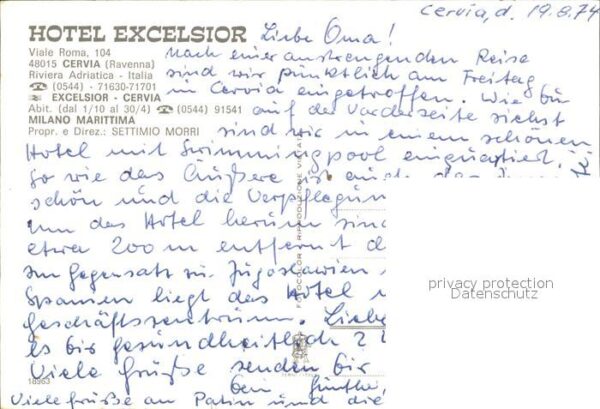 Cervia, d. 19.8.74
HOTEL EXCELSIOR
Viale Roma, 104
48015 CERVIA (Ravenna)
Riviera Adriatica - Italia
☎ (0544) - 71630-71701
EXCELSIOR - CERVIA
Abit. (dal 1/10 al 30/4) ☎ (0544) 91541
MILANO MARITTIMA
Propr. e Direz.: SETTIMIO MORRI
Liebe Oma!
Nach einer anstrengenden Reise
sind wir pünktlich am Freitag
in Cervia eingetroffen. Wie Du
auf der Vorderseite siehst
sind wir in einem schönen
Hotel mit Swimmingpool einquartiert.
So wie das Äußere ist auch
schön und die
um das Hotel herum
etwa 200 m entfernt
Im Gegensatz zu Jugoslawien
Spanien liegt das Hotel
Geschäftszentrum. Liebe
es Dir gesundheitlich
Viele Grüße senden Dir
Viele Grüße an Patin und die
18963
privacy protection
Datenschutz